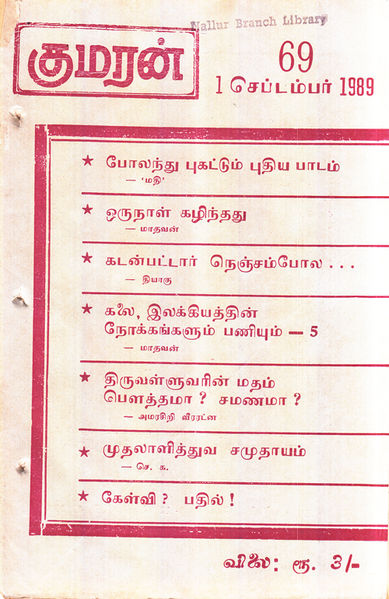 Nallur Branch Library
குமரன்
69
1 செப்டம்பர் 1989
★ போலந்து புகட்டும் புதிய பாடம்
— 'மதி'
★ ஒருநாள் கழிந்தது
— மாதவன்
★ கடன்பட்டார் நெஞ்சம்போல ...
— தியாகு
★ கலை, இலக்கியத்தின்
நோக்கங்களும் பணியும் — 5
— மாதவன்
★ திருவள்ளுவரின் மதம்
பௌத்தமா ? சமணமா ?
— அமரசிறி வீரரட்ன
★ முதலாளித்துவ சமுதாயம்
— செ. க.
★ கேள்வி ? பதில் !
விலை: ரூ. 3/-